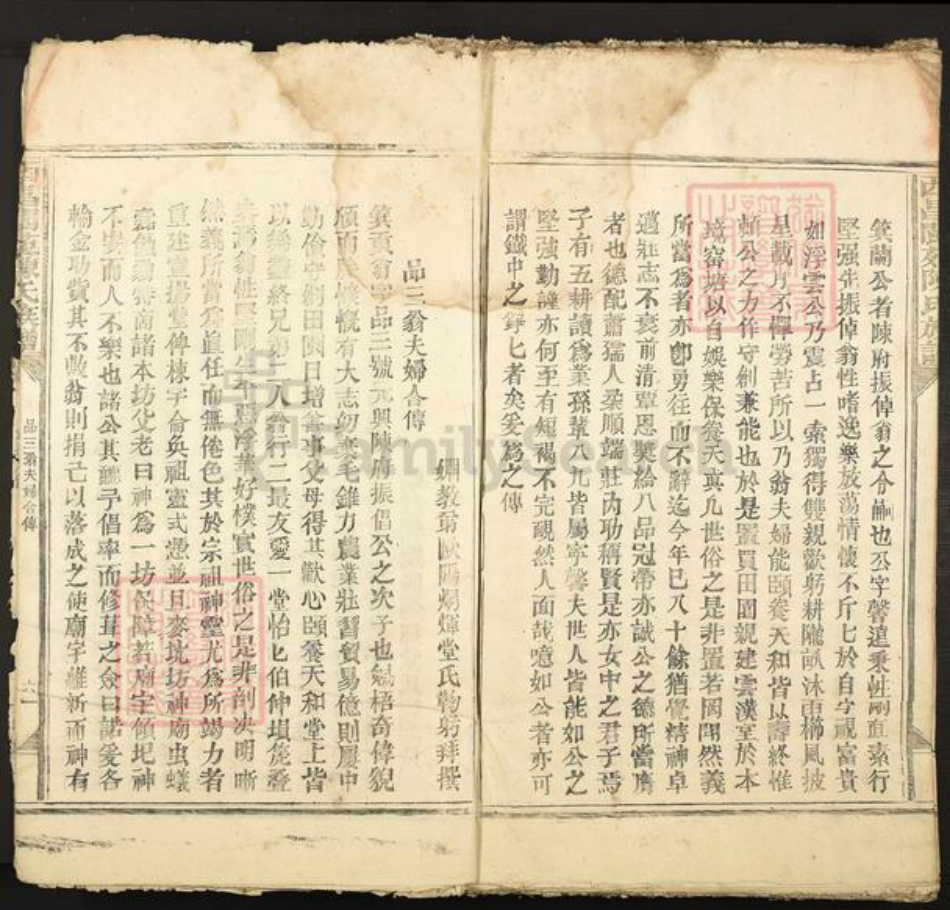 蘭公者陳府振倬翁之令嗣也公字馨遠秉性剛直素行
堅强先振倬翁性嗜逸樂放蕩情懷不斤七於自守視富貴
如浮雲公乃震占一索獨得雙親歡躬耕隴畝沐雨櫛風披
星載月不憚勞苦所以乃翁夫婦能頤養天和皆以壽終惟
賴公之力作守創兼能也於是置買田園親建雲漢堂於本
境窑塘以自娛樂保養天真凡世俗之是非置若罔聞然義
所當為者亦卽勇往而不辭迄今年已八十餘猶覺精神卓
邁壯志不衰前清覃恩奬給八品冠帶亦誠公之德所當膺
者也德配蕭孺人柔順端莊內功稱賢是亦女中之君子焉
子有五耕讀為業孫輩八九皆屬寧馨夫世人皆能如公之
堅強勤謹亦何至有短褐不完覥然人面哉噫如公者亦可
謂鐵中之錚七者矣爰為之傳
姻教弟歐陽炳煇堂氏鞠躬拜撰
品三翁夫婦合傳
翁字品三號元興陳府振倡公之次子也魁梧奇偉貌
頎而慷慨有大志幼棄毛錐力農業壯習貿易億則屢中
勤儉守創田園日增善事父母得其歡心頤養天和堂上皆
以終兄弟二人翁行二最友愛一堂怡七伯仲塤箎
翁性剛生華好樸實世俗之是非剖决明晰
然義所當為直任而無倦色其於宗祖神靈尤為所竭力者
重建堂揚堂俾棟宇侖奐祖靈式憑並且麥坑坊神廟虫蟻
蠹蝕翁諸本坊父老曰神為一坊保障若廟宇傾圯神
不安而人不樂也諸公其聽予倡率而修葺之僉曰諾爰各
輸金功貲其不敷翁則捐己以落成之使廟宇維新而神有
品三翁夫婦合傳
FamilySearch